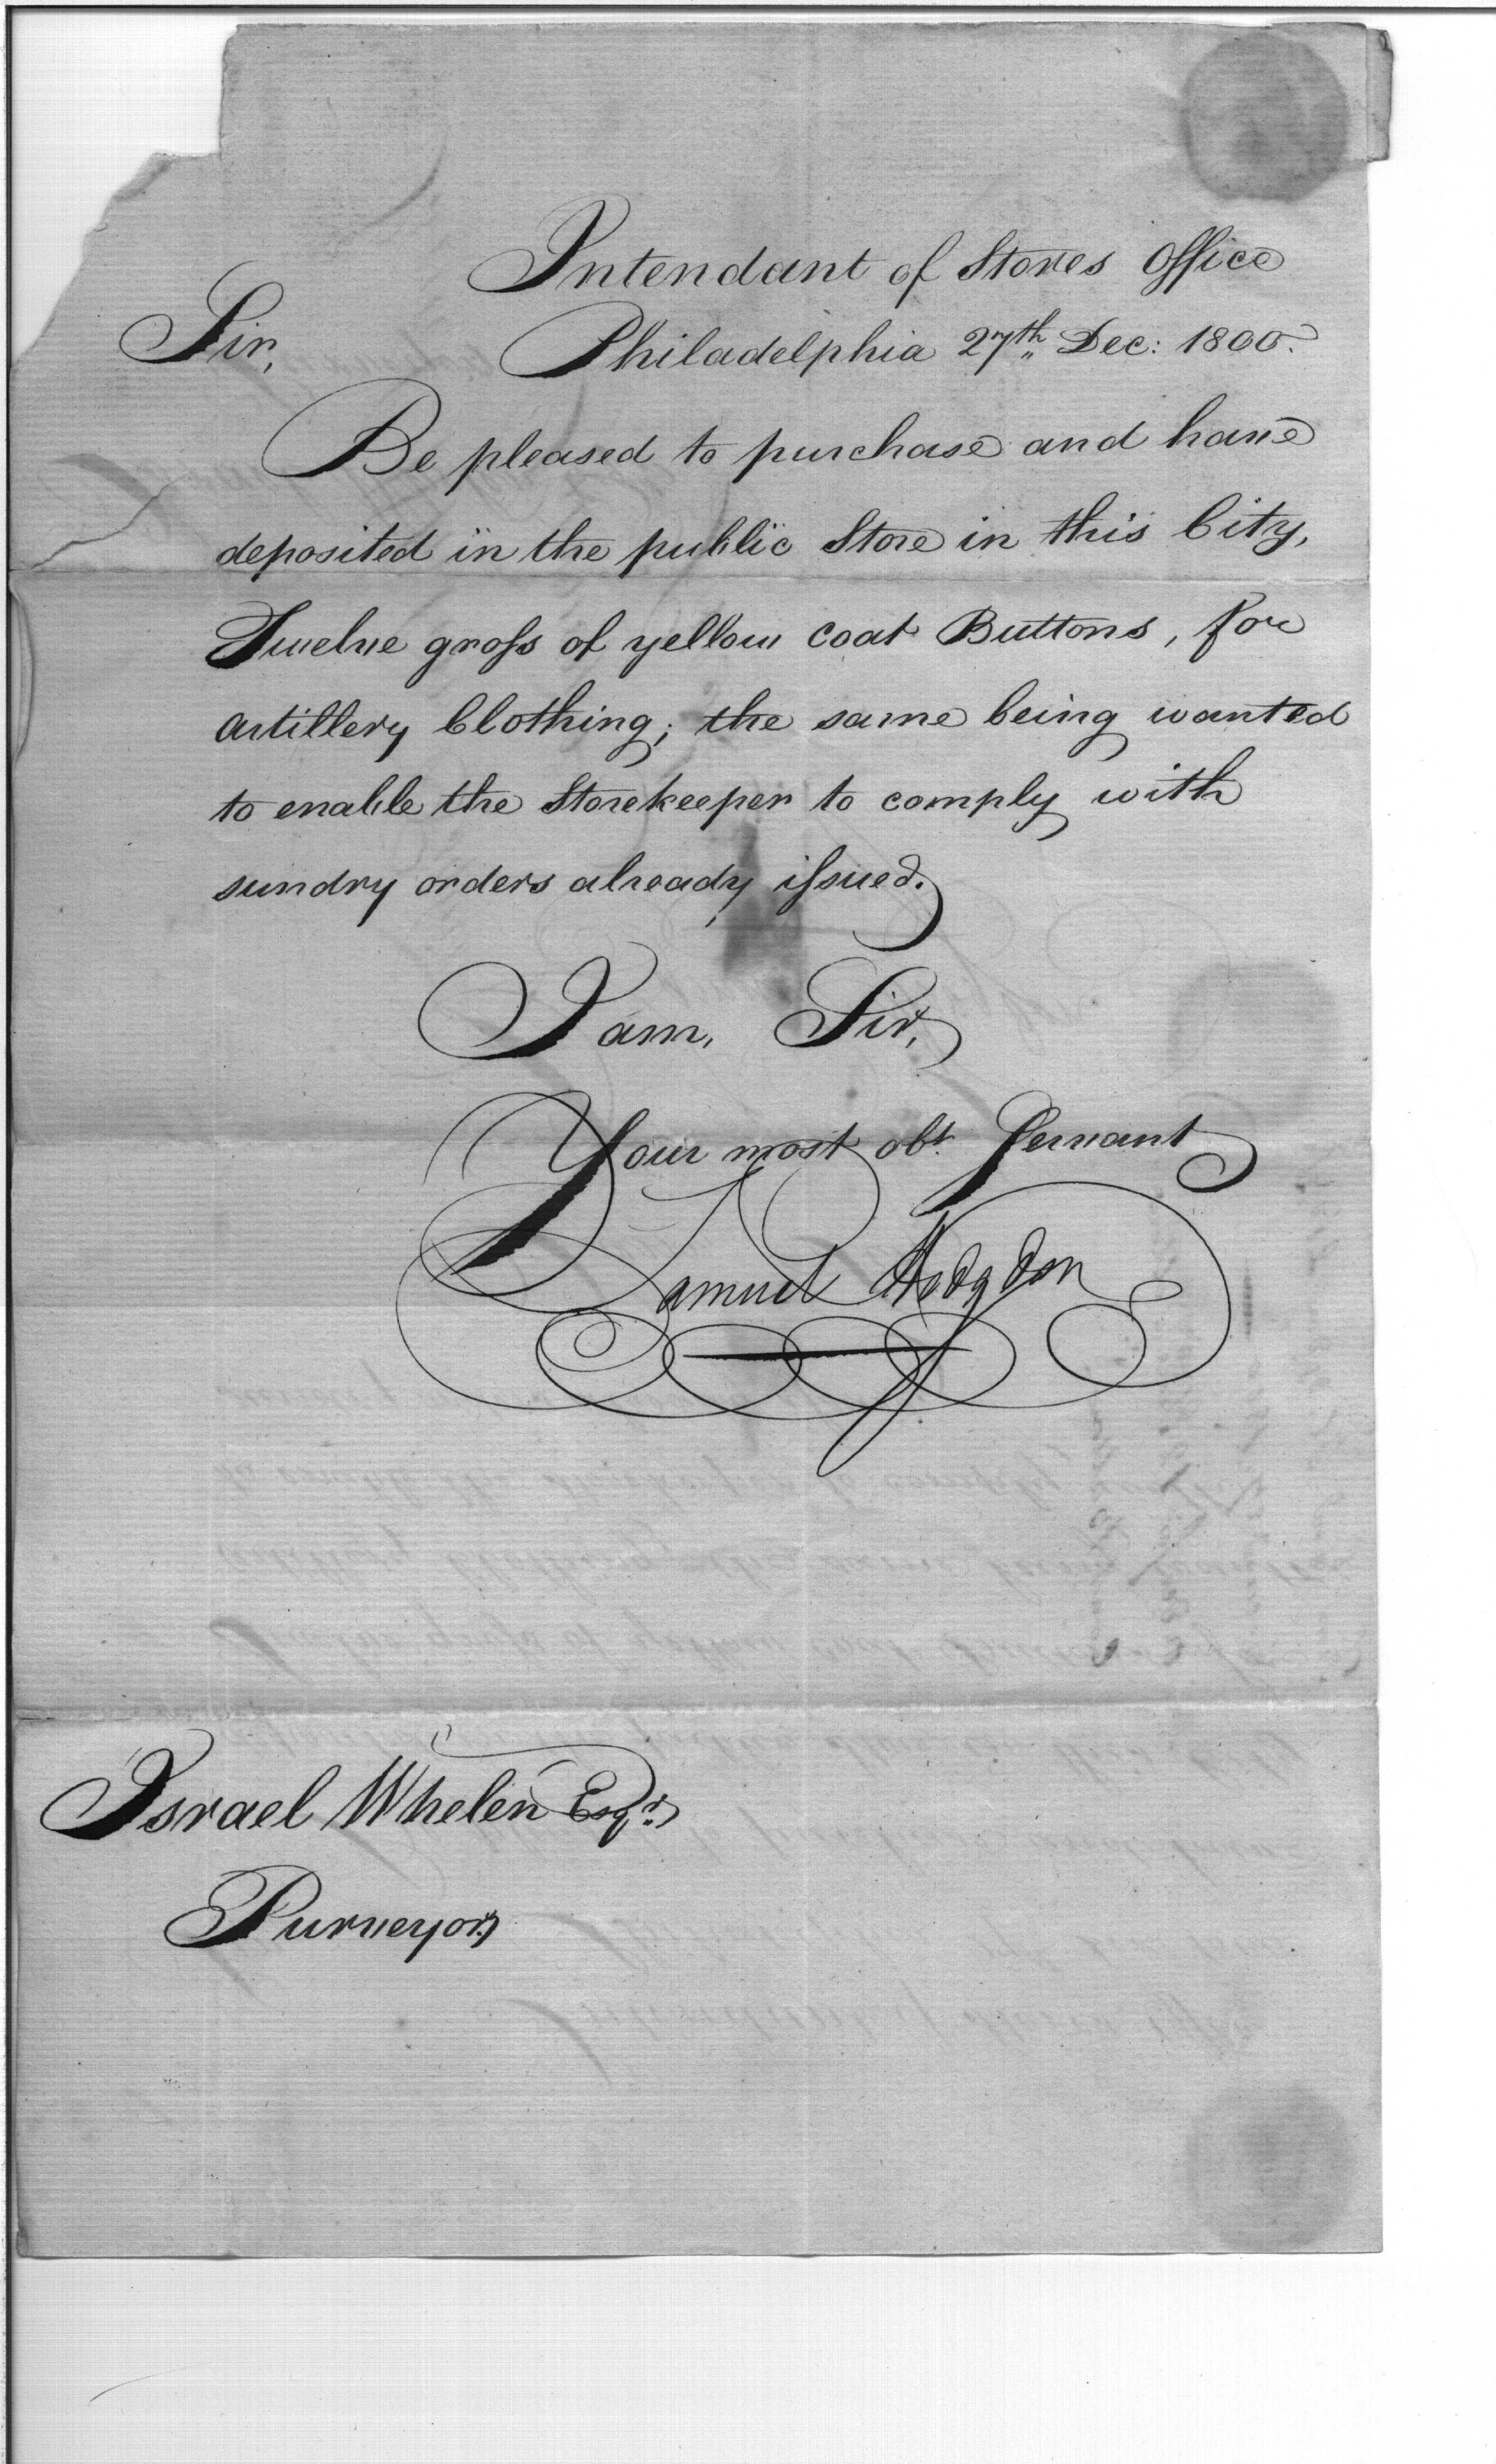 Intendant of Stores Office
Sir, Philadelphia 27th Dec: 1800.
Be pleased to purchase and have
deposited in the public Store in this City,
Twelve groſs of yellow coat Buttons, for
Artillery Clothing; the same being wanted
to enable the Storekeeper to comply with
sundry orders already iſsued.
I am, Sir,
Your most obt. Servant
Samuel Hodgdon
Israel Whelen Esqr.
Purveyor.